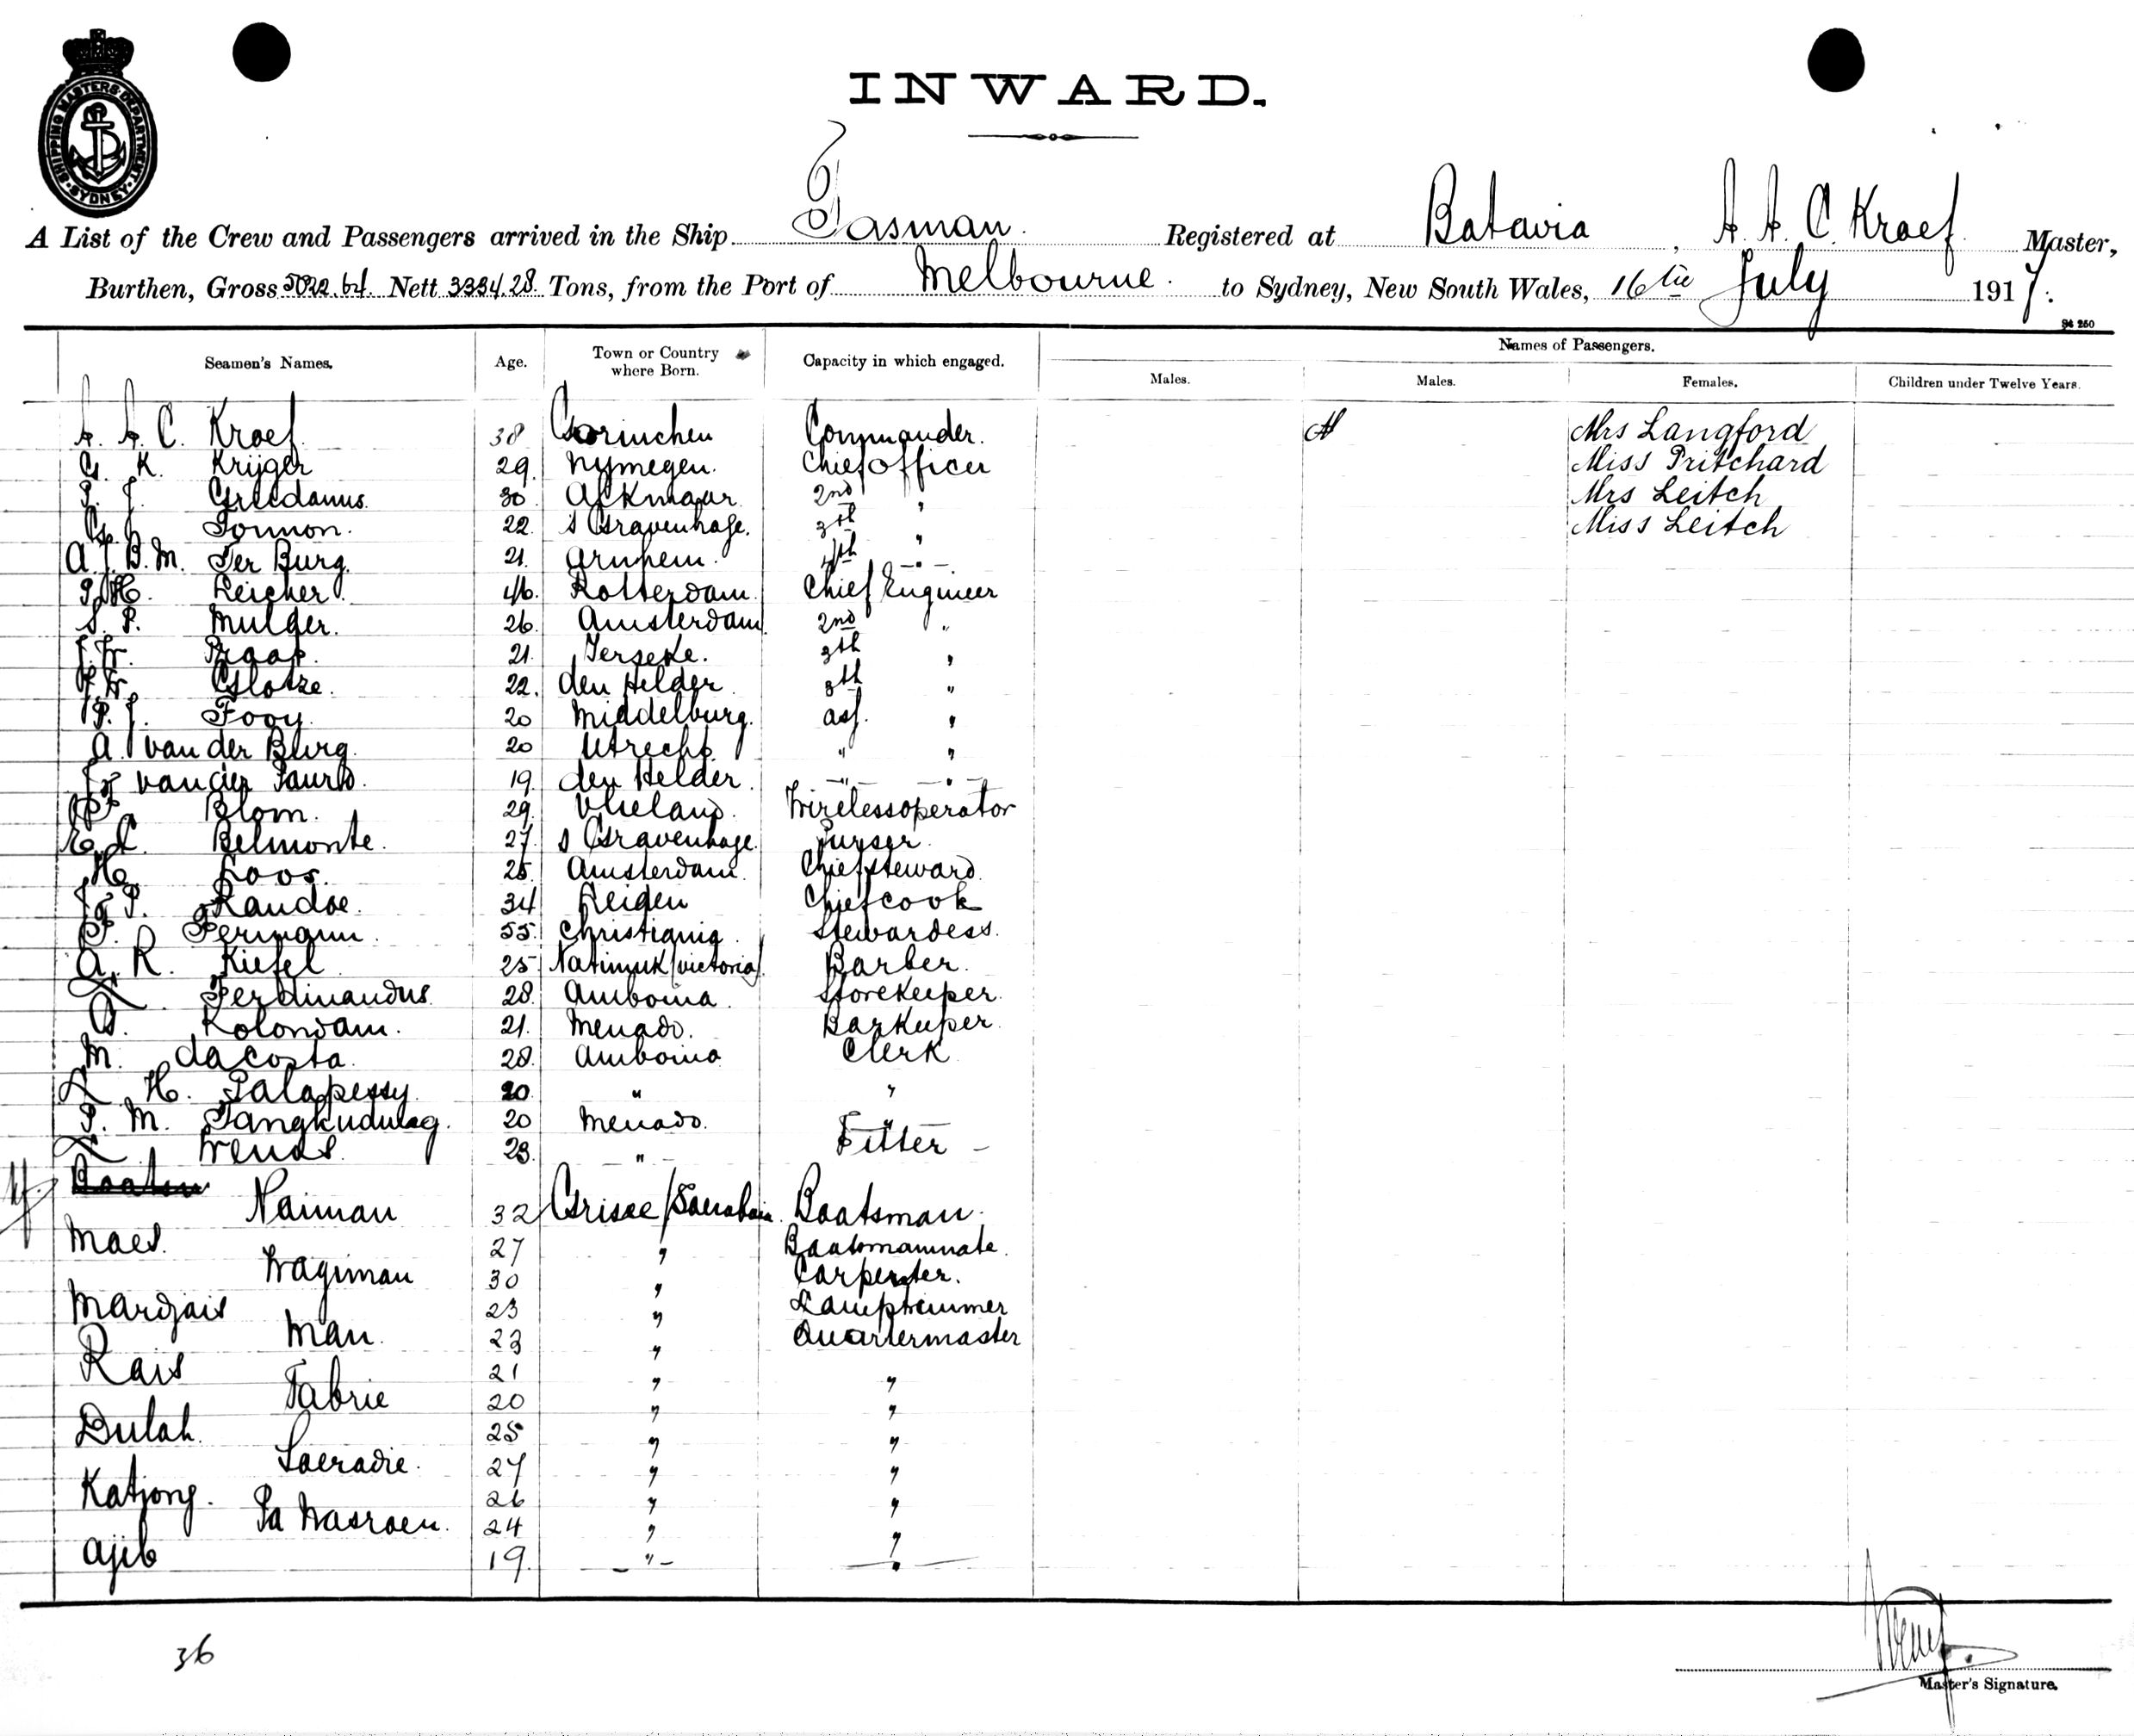 SHIPPING MASTERS DEPARTMENT
SYDNEY
INWARD.
A List of the Crew and Passengers arrived in the Ship Tasman. Registered at Batavia, A. A. C. Kraef. Master,
Burthen, Gross 5022.64 Nett 3334.28. Tons, from the Port of Melbourne. to Sydney, New South Wales, 16th July 1917.
S4 250
Seamen's Names. Age. Town or Country where Born. Capacity in which engaged. Names of Passengers.
Males. Males. Females. Children under Twelve Years.
A. A. C. Kraef. 38 Gorinchen Commander. Mrs Langford
G. K. Krijger 29. Nymegen. Chief officer Miss Pritchard
P. J. Greidanus. 30 Alkmaar 2nd " Mrs Leitch
Tonnon. 22. s Gravenhage. 3th " Miss Leitch
A. J. B. M. Ter Burg. 21. Arnhem. 4th "
Reicher. 46. Rotterdam. Chief Engineer
S. P. Mulder. 26. Amsterdam 2nd "
Braap. 21. Jerseke. 3th "
Glotze. 22. den Helder 3th "
P. J. Fooy. 20 Middelburg. ass. "
A. van der Burg. 20 Utrecht " "
van der 19. den Helder. " "
Blom. 29. Vlieland. Wirelessoperator
E. L. Belmonte. 27. s Gravenhage. purser.
H. Loos. 25. Amsterdam. Chiefsteward.
P. Randoe. 34 Leiden Chiefcook
P. Permann. 55. Christiania. Stewardess.
A. R. Kiefel 25 Natimuk (victoria) Barber.
Ferdinandus. 28. Amboina. Storekeeper.
Kolondam. 21. Menado. Barkeeper.
M. da Costa. 28. Amboina Clerk
L. H. Talapessy. 20. " "
P. M. Tangkudulag. 20 Menado. "
Wenas. 23. " Fitter -
Naiman 32 Grisee / Soerabaia. Boatsman.
Maes. 27 " Boatsmanmate.
Wagiman 30 " Carpenter.
Mardjais 23 " Lamptrimmer
Man. 23 " Quartermaster
Rais 21 " "
Tabrie 20 " "
Dulah. 25 " "
Soeradie. 27 " "
Katjong. 26 " "
Pa Nasroen. 24 " "
Ajib 19. " "
36
Master's Signature.